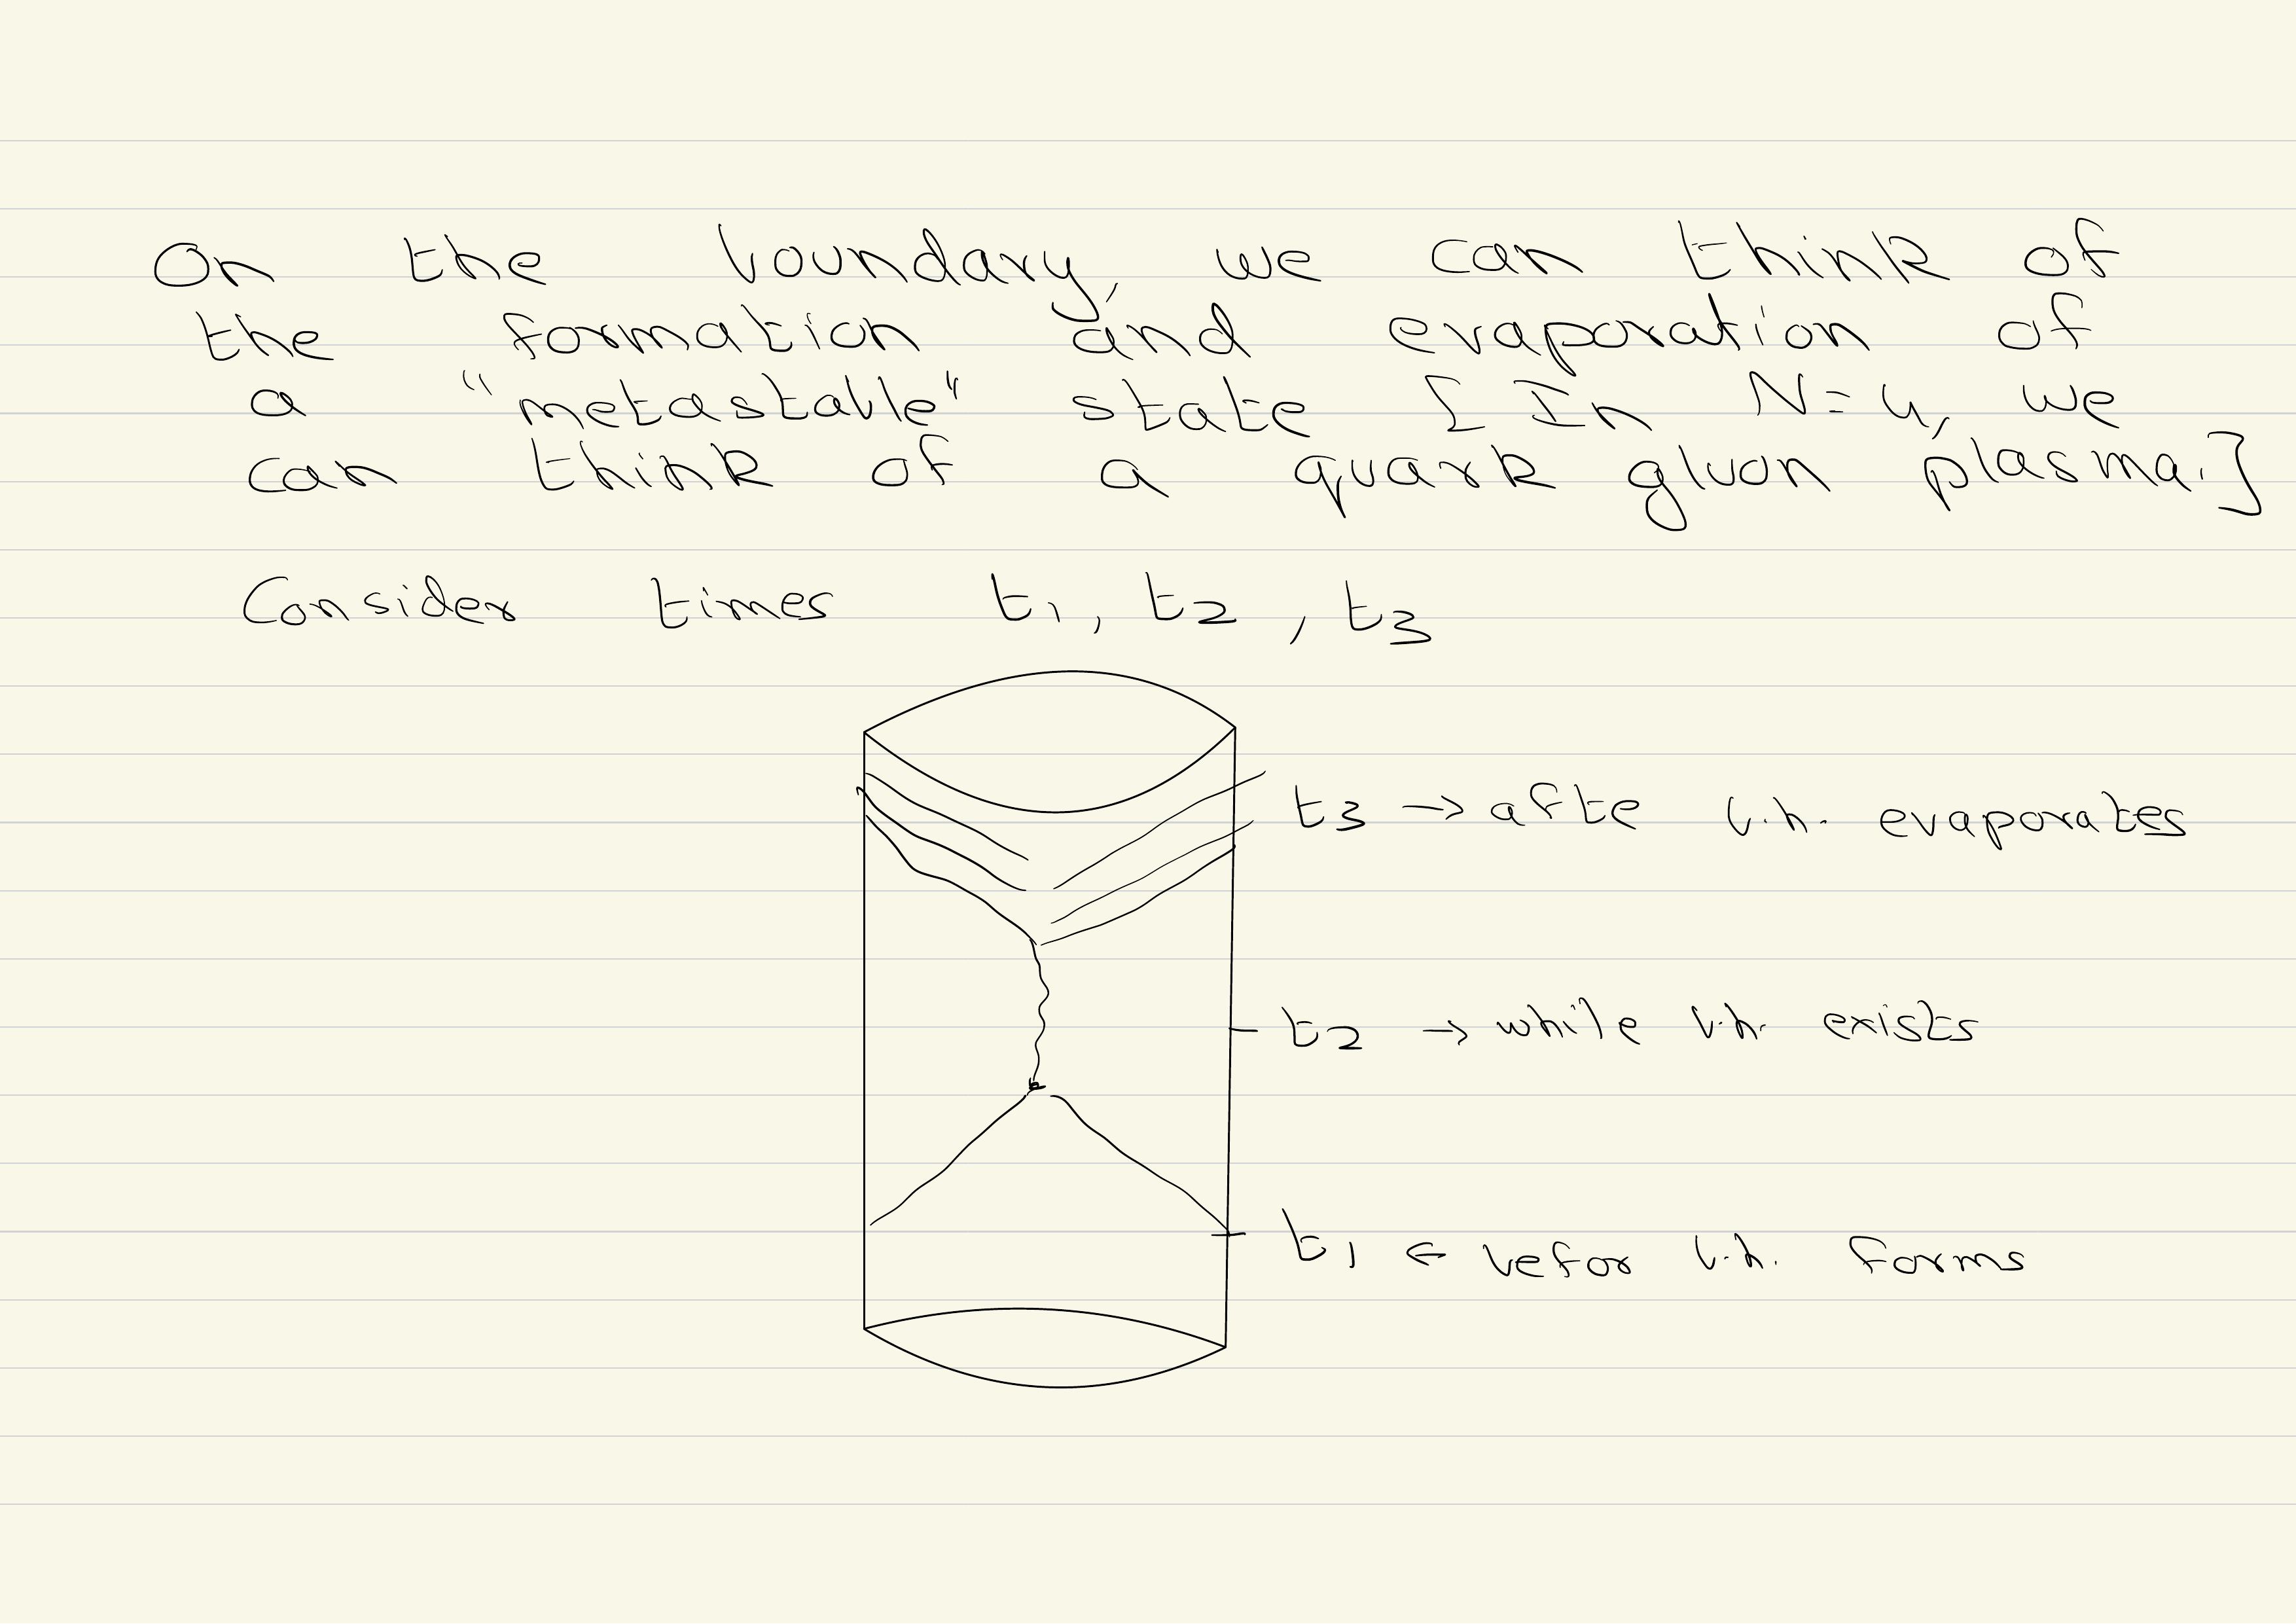 On the boundary, we can think of
the formation and evaporation of
a "metastable" state [In N=4, we
can think of a quark gluon plasma.]
Consider times t1, t2, t3
t3 → afte b.h. evaporates
t2 → while b.h. exists
t1 ← befor b.h. forms